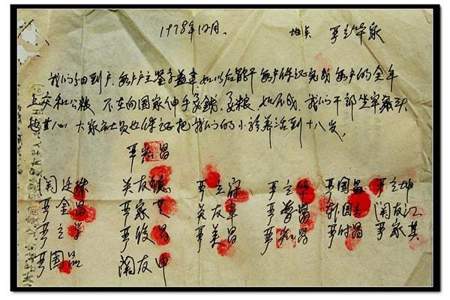 1978年12月 地点 严立华家
我们分田到户 每户户主签字盖章 如以后能干 每户保证完成每户的全年
上交和公粮 不在向国家伸手要钱要粮 如不成 我们干部坐牢杀头
也甘心 大家社员也保证把我们的小孩养活到十八岁
严宏昌
关廷珠 关友德 严立符 严立华 严国昌 严立坤
严金昌 严家芝 关友章 严学昌 韩国云 关友江
严立学 严俊昌 严美昌 严宏昌 严付昌 严家其
严国品 关友申